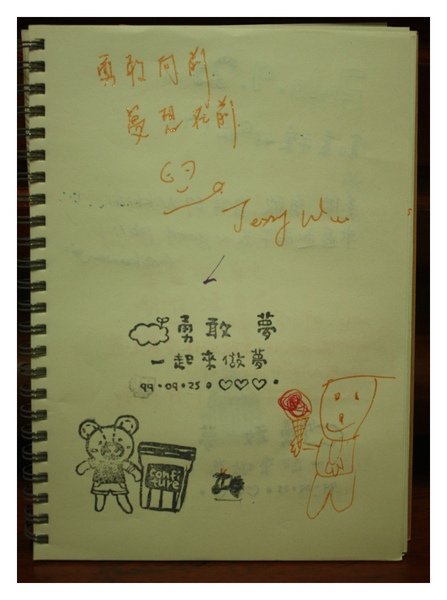 勇敢向前
夢想 前
Jerry Wu
勇敢 夢
一起來做夢
99.09.25.♡♡♡.
confi
ture